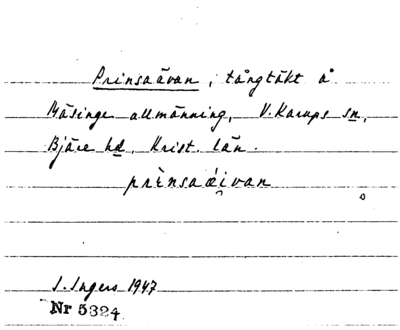 Prinsaävan, tångtäkt å
Mäsinge allmänning, V. Karups sn,
Bjäre hd, Krist. län.
prı̀nsaái̯van
I. Ingers 1947
Nr 5324